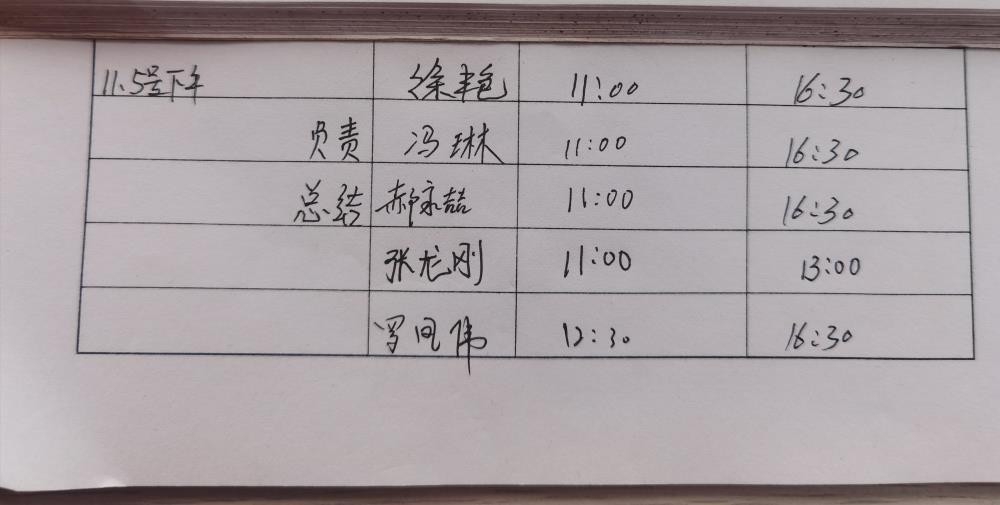 11.5号下午 徐丰艳 11:00 16:30
负责 冯琳 11:00 16:30
总结 郝永喆 11:00 16:30
张龙刚 11:00 13:00
罗同伟 12:30 16:30